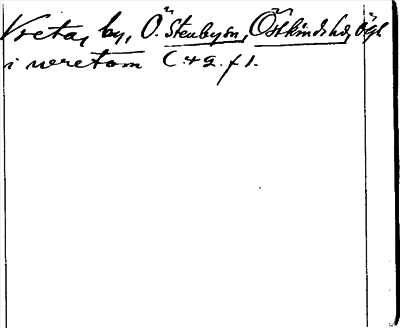 Vreta, by, Ö. Stenby sn, Östkinds hd, Ögl
i wretom C 42. f 1.